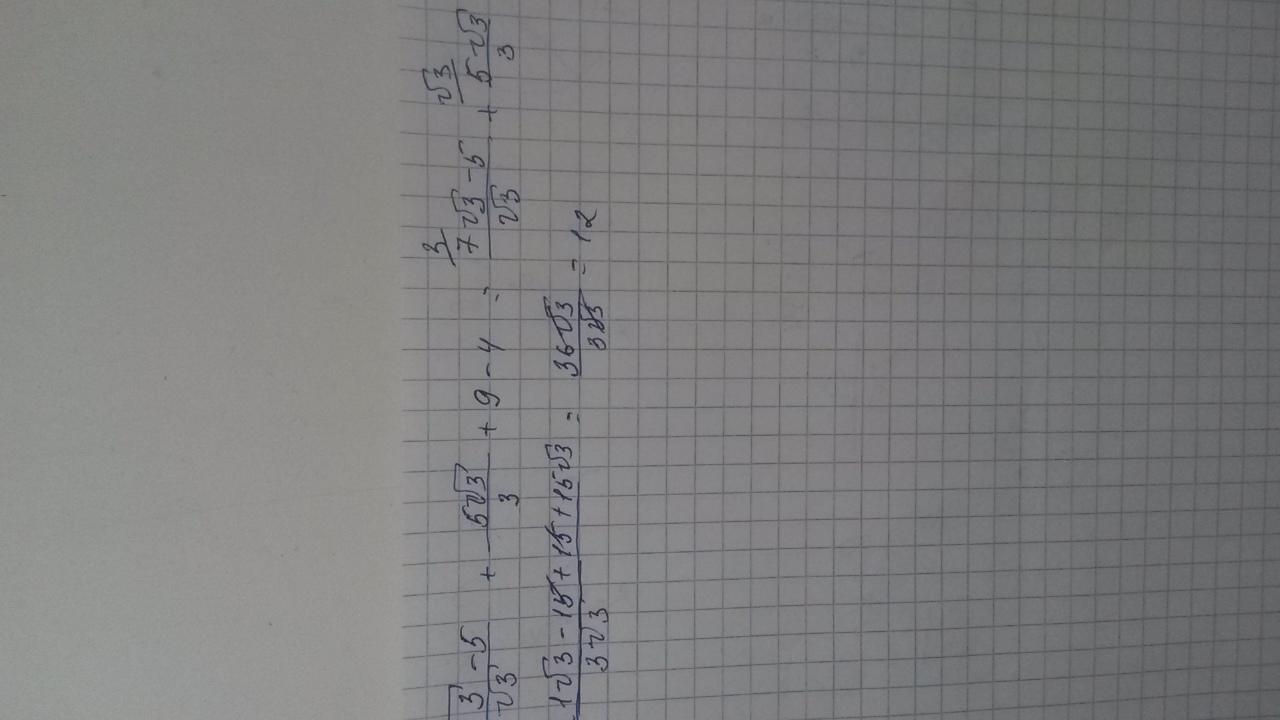 √3 - 5 / √3 + 5√3 / 3 + 9 - 4 = 3/ 7√3 - 5 / √3 + √3/ 5√3 / 3
1√3 - 15 + 15 + 15√3 / 3√3 = 36√3 / 3√3 = 12